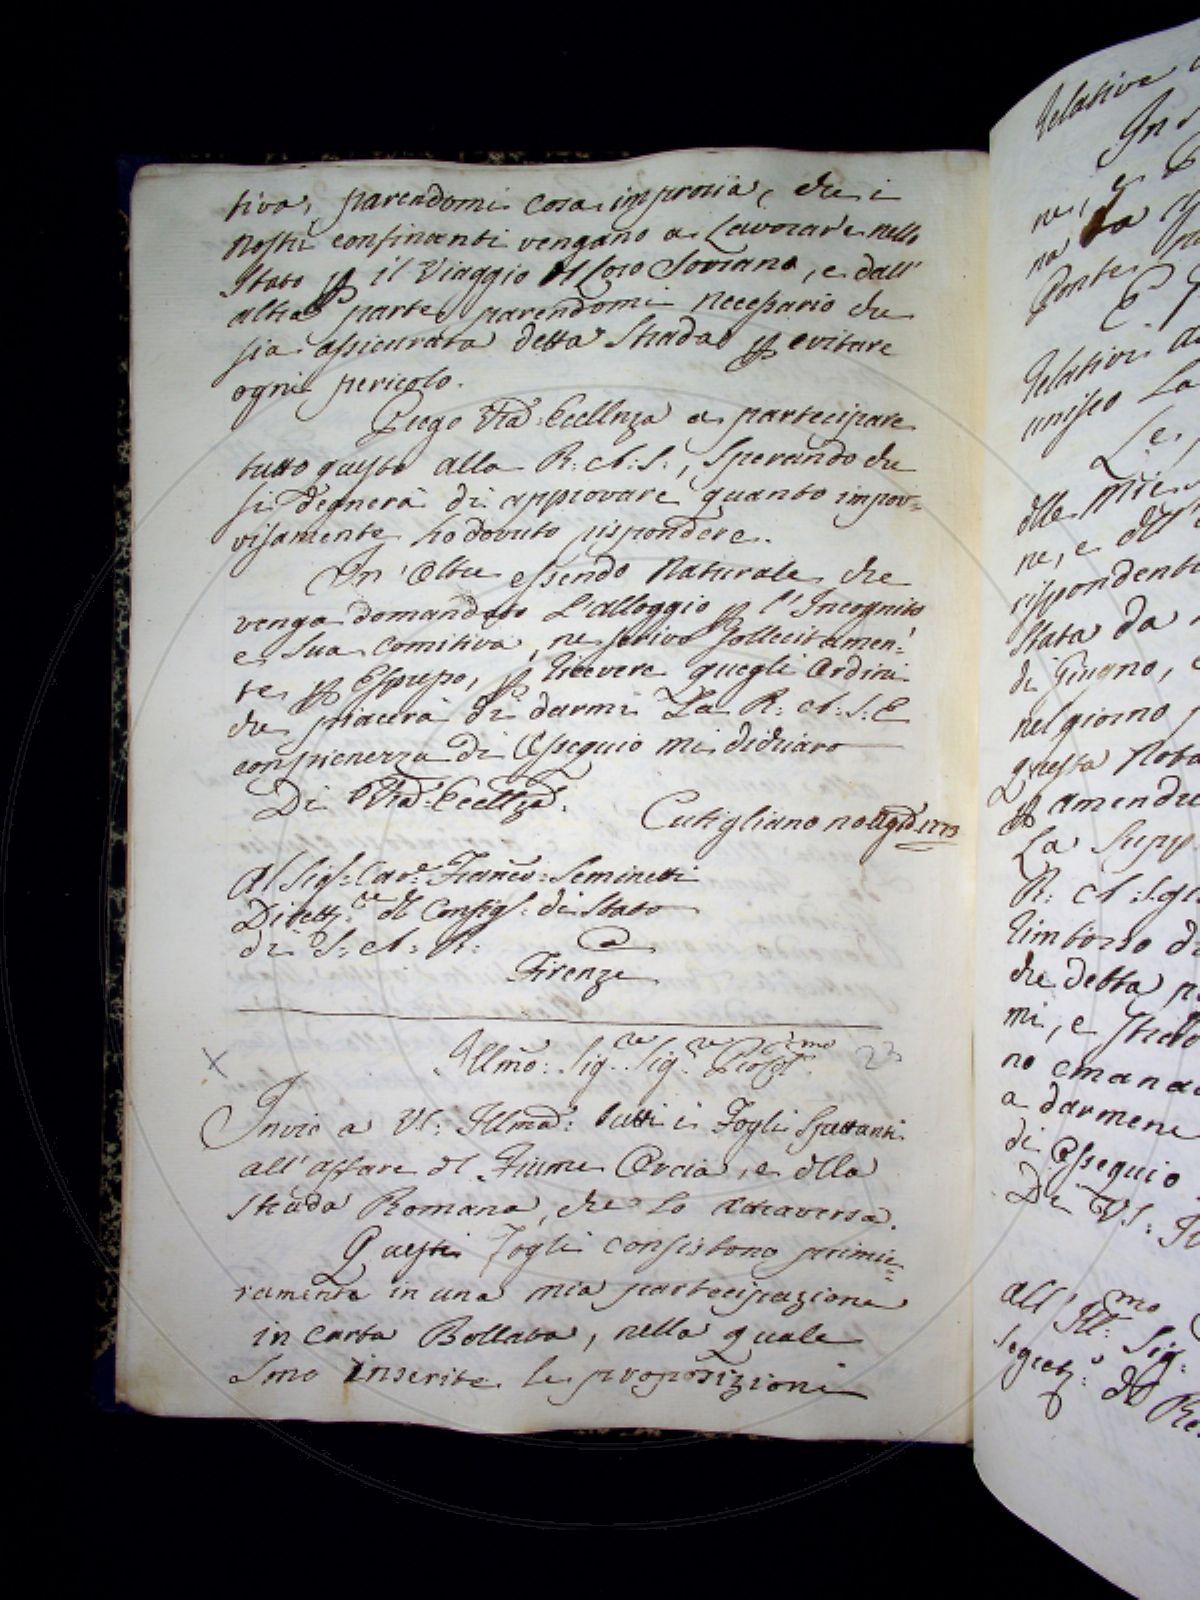 tiva, parendomi cosa impropia, che i
nostri confinanti vengano a Lavorare nello
Stato p il Viaggio del Loro Sovrano, e dall'
altra parte parendomi necessario che
sia assicurata detta Strada p evitare
ogni pericolo.
Prego Vra: Eccellnza a partecipare
tutto questo alla R: A: S:, Sperando che
si degnerà di approvare quanto improv=
visamente ho dovuto rispondere.
In' Oltre essendo Naturale, che
venga domandato L'alloggio p l'Incognito
e Sua comitiva, ne scrivo sollecitamen=
te p Espresso, p ricevere quegli Ordini
che piacerà di darmi La R: A: S: E
con pienezza di Ossequio mi dichiaro
Di Vra: Eccellza:
Cutigliano 1773
Al Sig: Cav:e Franco: Seminetti
Dirett:re del Consigl: di Stato
di S: A: R:
Firenze
Illmo: Sig:re Sig:re Pron: Colmo 23
X
Invio a VS: Illma: tutti i Fogli Spettanti
all'affare del Fiume, e della
Strada Romana, che lo attraversa.
Questi Fogli consistono primie=
ramente in una mia partecipazione
in carta Bollata, nella quale
Sono inserite le proposizioni
Relative
In
ne, e
na
Ponte
E
Relativi
unisco La
Le
delle mie
ne, e del
rispondenti
Stata da
di Giugno,
nel giorno
questa Nota
p amendu
La Supp
R: A: S:
rimborso di
che detta
mi, e
no emana
a darmene
di Ossequio
Di VS: Il
All' Ill:mo Sig:
Segret:o del Re